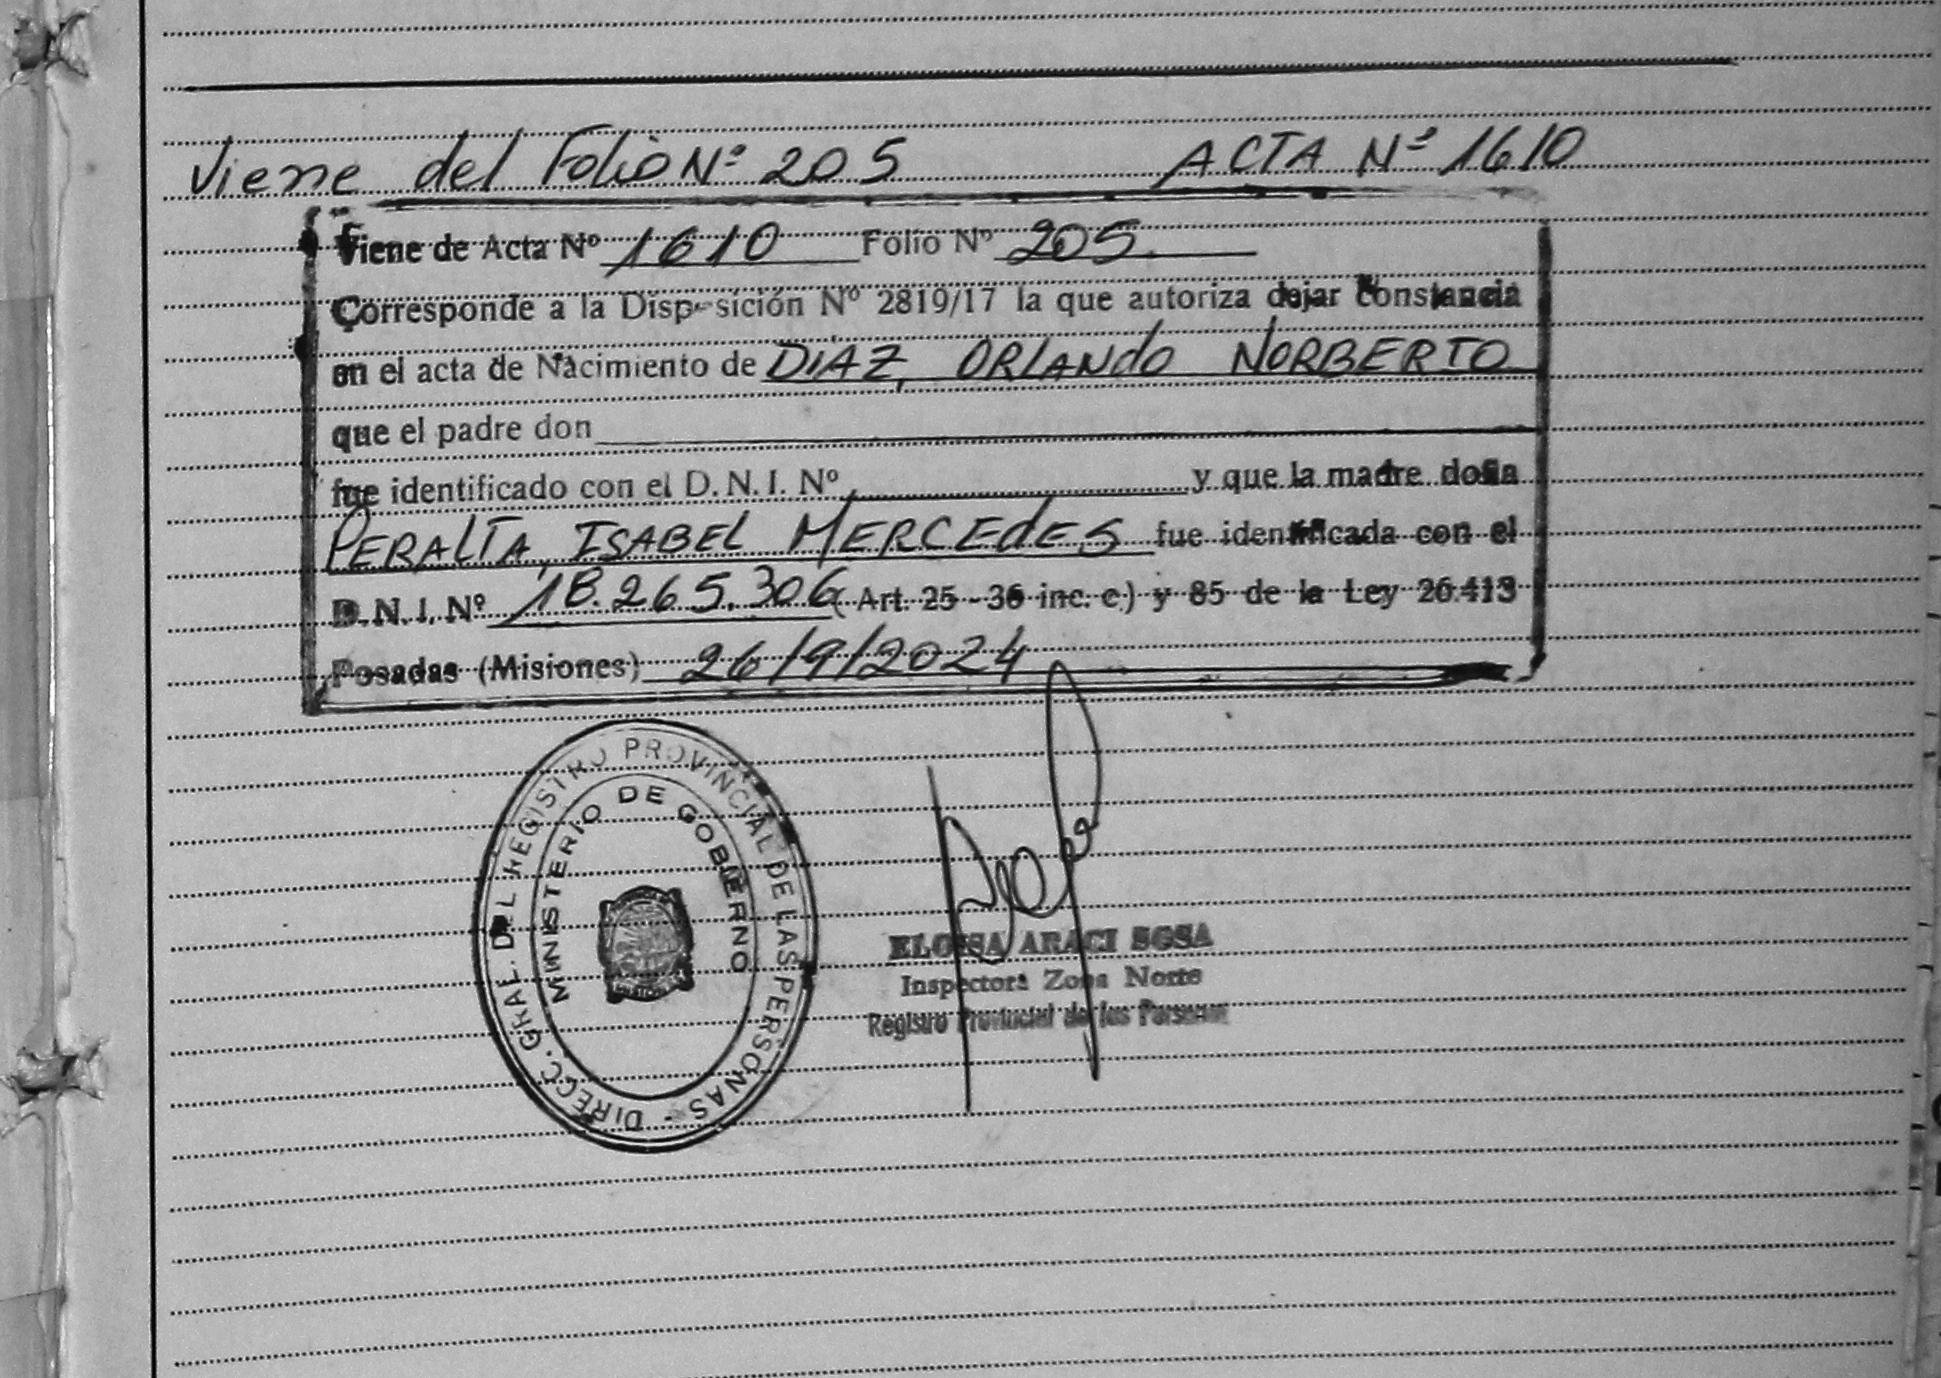 Viene del Folio Nº 205 ACTA Nº 1610
Viene de Acta Nº 1610 Folio Nº 205.
Corresponde a la Disposición Nº 2819/17 la que autoriza dejar constancia
en el acta de Nacimiento de DIAZ, ORLANDO NORBERTO
que el padre don
fue identificado con el D.N.I. Nº y que la madre doña
PERALTA, ISABEL MERCEDES fue identificada con el
D.N.I. Nº 18.265.306 (Art. 25 - 36 inc. c) y 85 de la Ley 26.413
Posadas (Misiones) 26/9/2024
DIRECC. GRAL. DEL REGISTRO PROVINCIAL DE LAS PERSONAS -
MINISTERIO DE GOBIERNO
ELOISA ARACI SOSA
Inspectora Zona Norte
Registro Provincial de las Personas